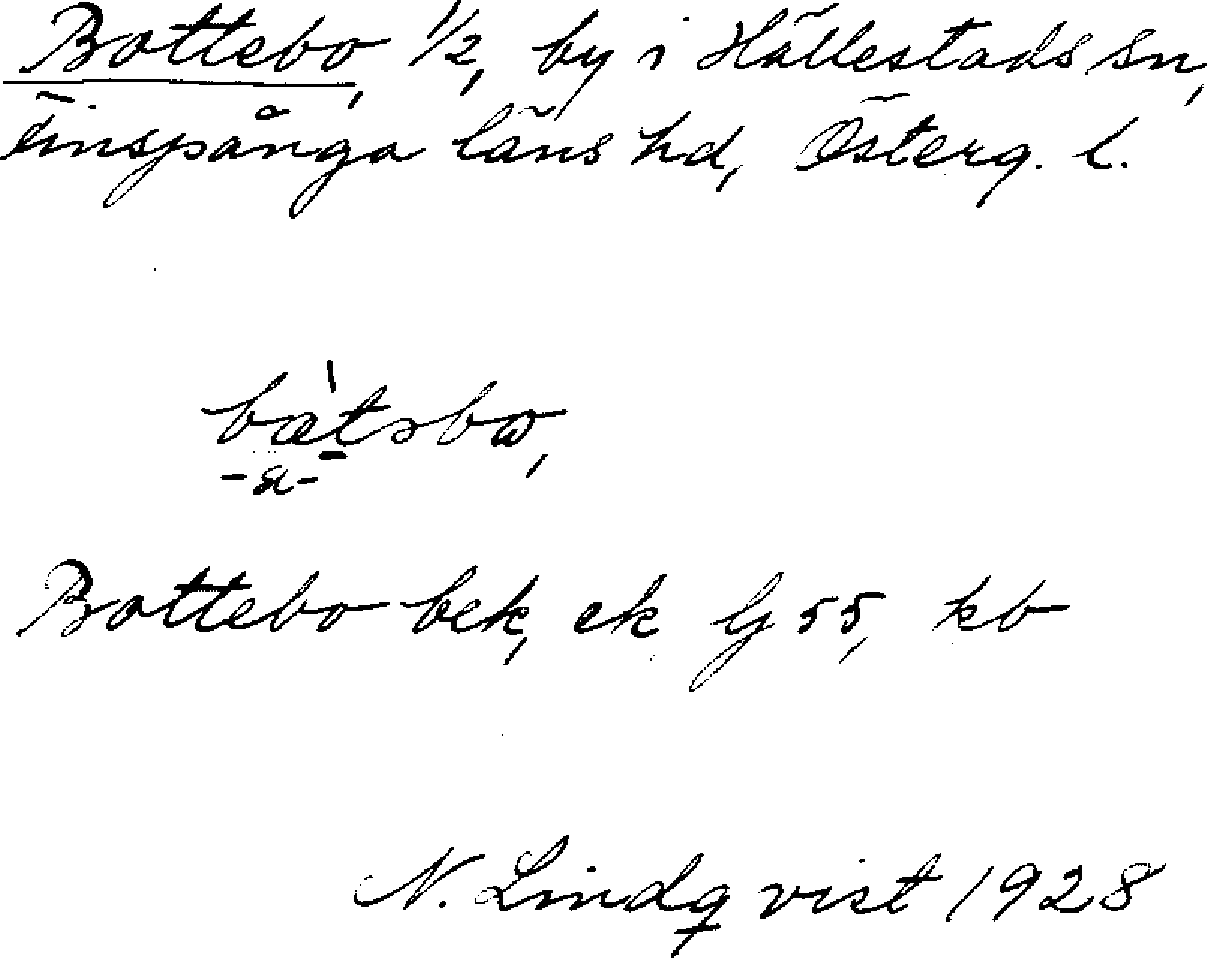 Bottebo, 1/2, by i Hällestads sn,
Finspånga läns hd, Österg. l.
bàtəbω,
-a-
Bottebo bek, ek Gj 55, kb
N. Lindqvist 1928